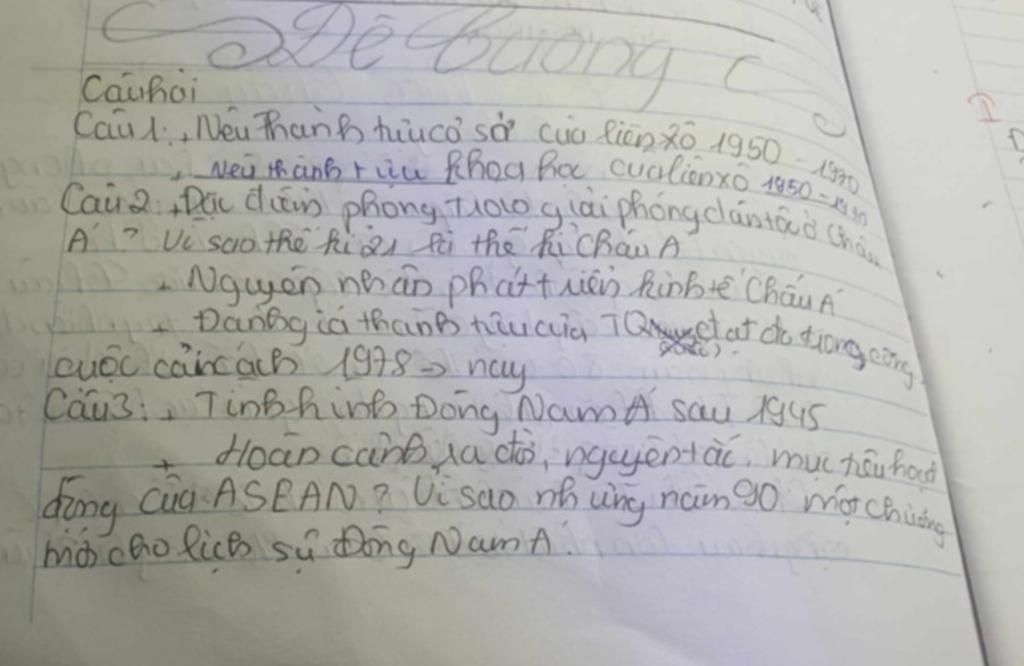 Đề Cương
Câu hỏi
Câu 1: + Nêu thành tựu cơ sở của liên xô 1950 - 1970
+ Nêu thành tựu khoa học của liên xô 1950 - 1970
Câu 2: + Đặc điểm phong trào giải phóng dân tộc ở Châu
Á? Vì sao thế kỉ 21 là thế kỉ Châu Á
+ Nguyên nhân phát triển kinh tế Châu Á
+ Đánh giá thành tựu của TQ đạt đc trong công
cuộc cải cách 1978 → nay
Câu 3: + Tình hình Đông Nam Á sau 1945
+ Hoàn cảnh ra đời, nguyên tắc, mục tiêu hoạt
động của ASEAN? Vì sao những năm 90 một chương
mới cho lịch sự Đông Nam Á.